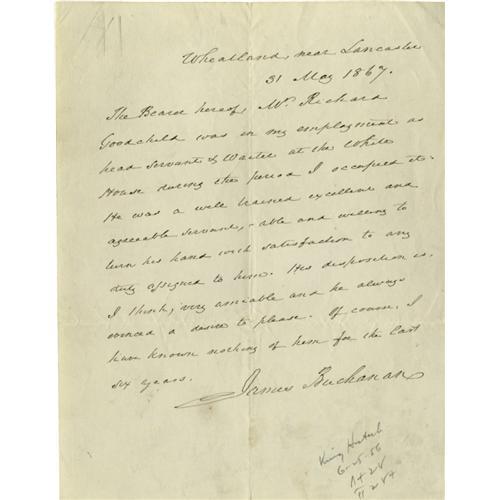 Wheatland, near Lancaster
31 May 1867.
The Bearer hereof, Mr. Richard
Goodchild was in my employment as
head servant & Waiter at the White
House during the period I occupied it.
He was a well trained excellent and
agreeable servant, - able and willing to
turn his hand with satisfaction to any
duty assigned to him. His disposition is,
I think, very amiable and he always
evinced a desire to please. Of course, I
have known nothing of him for the last
six years.
James Buchanan
6-25-56